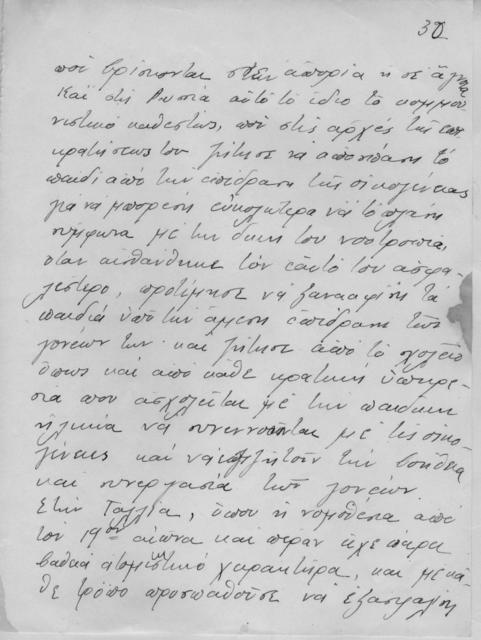 30
που βρίσκονται στην απορία ή σε άγνοια
Και στη Ρωσία αυτό το ίδιο το κομμου-
νιστικό καθεστώς, που στις αρχές της επι-
κρατήσεως του ζήτησε να αποσπάση το
παιδί από την επίδραση της οικογένειας
για να μπορέση ευκολώτερα να το πλάση
σύμφωνα με την δική του νοοτροπία,
όταν αισθάνθηκε τον εαυτό του ασφα-
λέστερο, προτίμησε να ξανααφήση τα
παιδιά υπό την άμεση επίδραση των
γονέων των και ζήτησε από το σχολείο
όπως και από κάθε κρατική υπηρε-
σία που ασχολείται με την παιδική
ηλικία να συνεννοείται με τις οικο-
γένειες και να ζητούν την βοήθεια
και συνεργασία των γονέων.
Στην Γαλλία, όπου η νομοθεσία από
τον 19ον αιώνα και πέραν είχε παρα
βαθειά ατομιστικό χαρακτήρα, και με κά-
θε τρόπο προσπαθούσε να εξασφαλίση